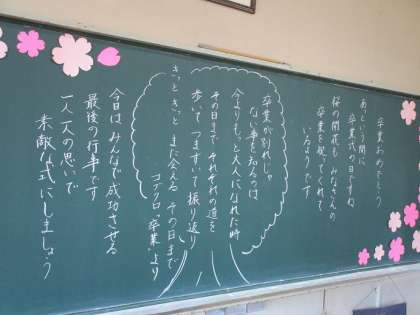 卒業おめでとう
あという間に
卒業式の日ですね
桜の開花もみなさんの
卒業を祝てくれて
いるようです
卒業が別れじゃ
ない事を知るのは
今よりもっと大人になれた時
その日まで それぞれの道を
歩いて つまずいて 振り返り
きっと きっと また会える その日まで
コブクロ "卒業" より
今日はみんなで成功させる
最後の行事です
一人一人の思いで
素敵な式にしましょう